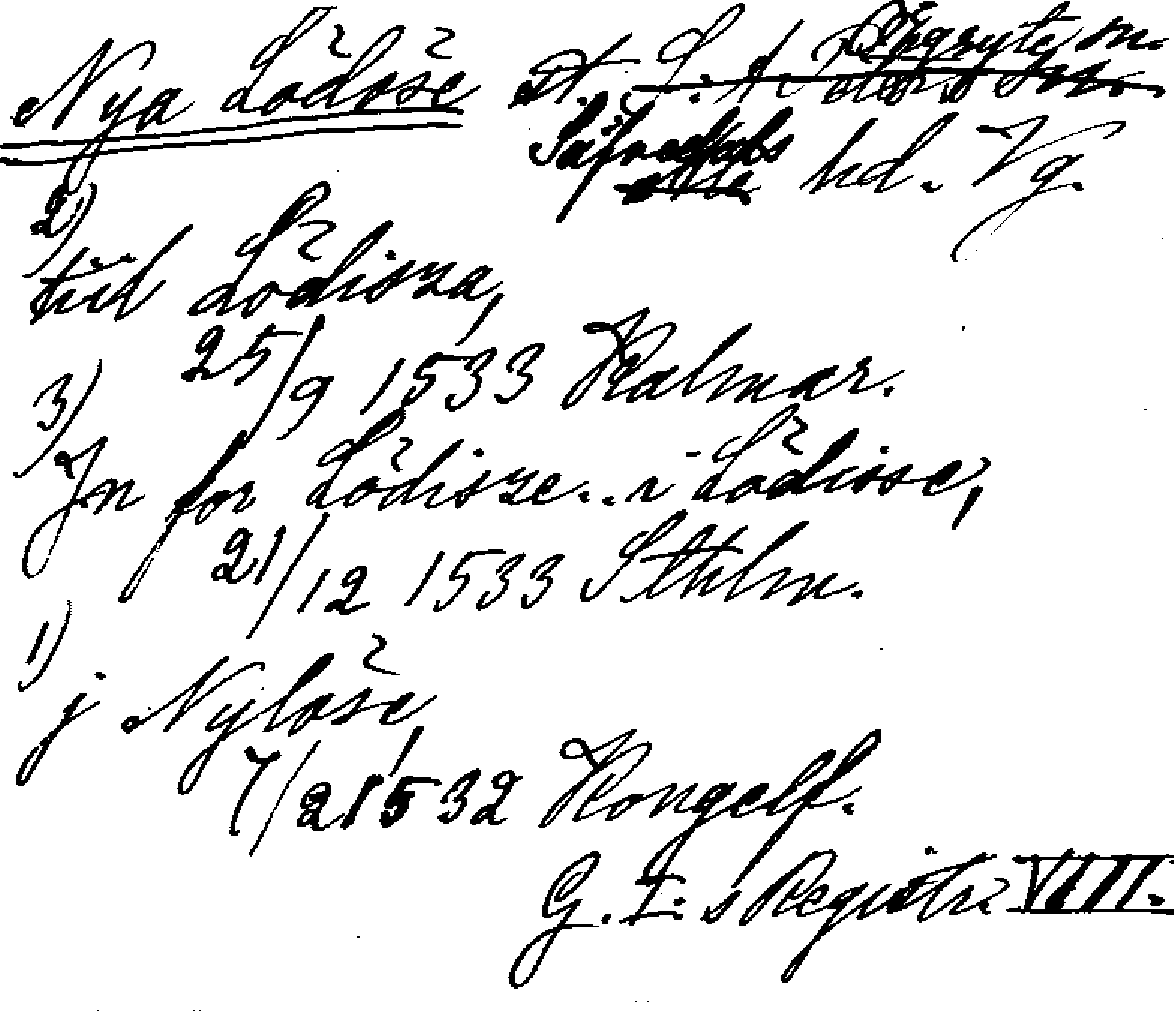 Nya Lödöse st. Örgryte sn.
Säfvedals hd. Vg.
2)
till Lödisza,
25/9 1533 Kalmar.
3)
Jn for Lödisze.. i Lödisse,
21/12 1533 Sthlm.
1)
j Nyløse,
7/2 1532 Kongelf.
G. I:s Registr. VIII.